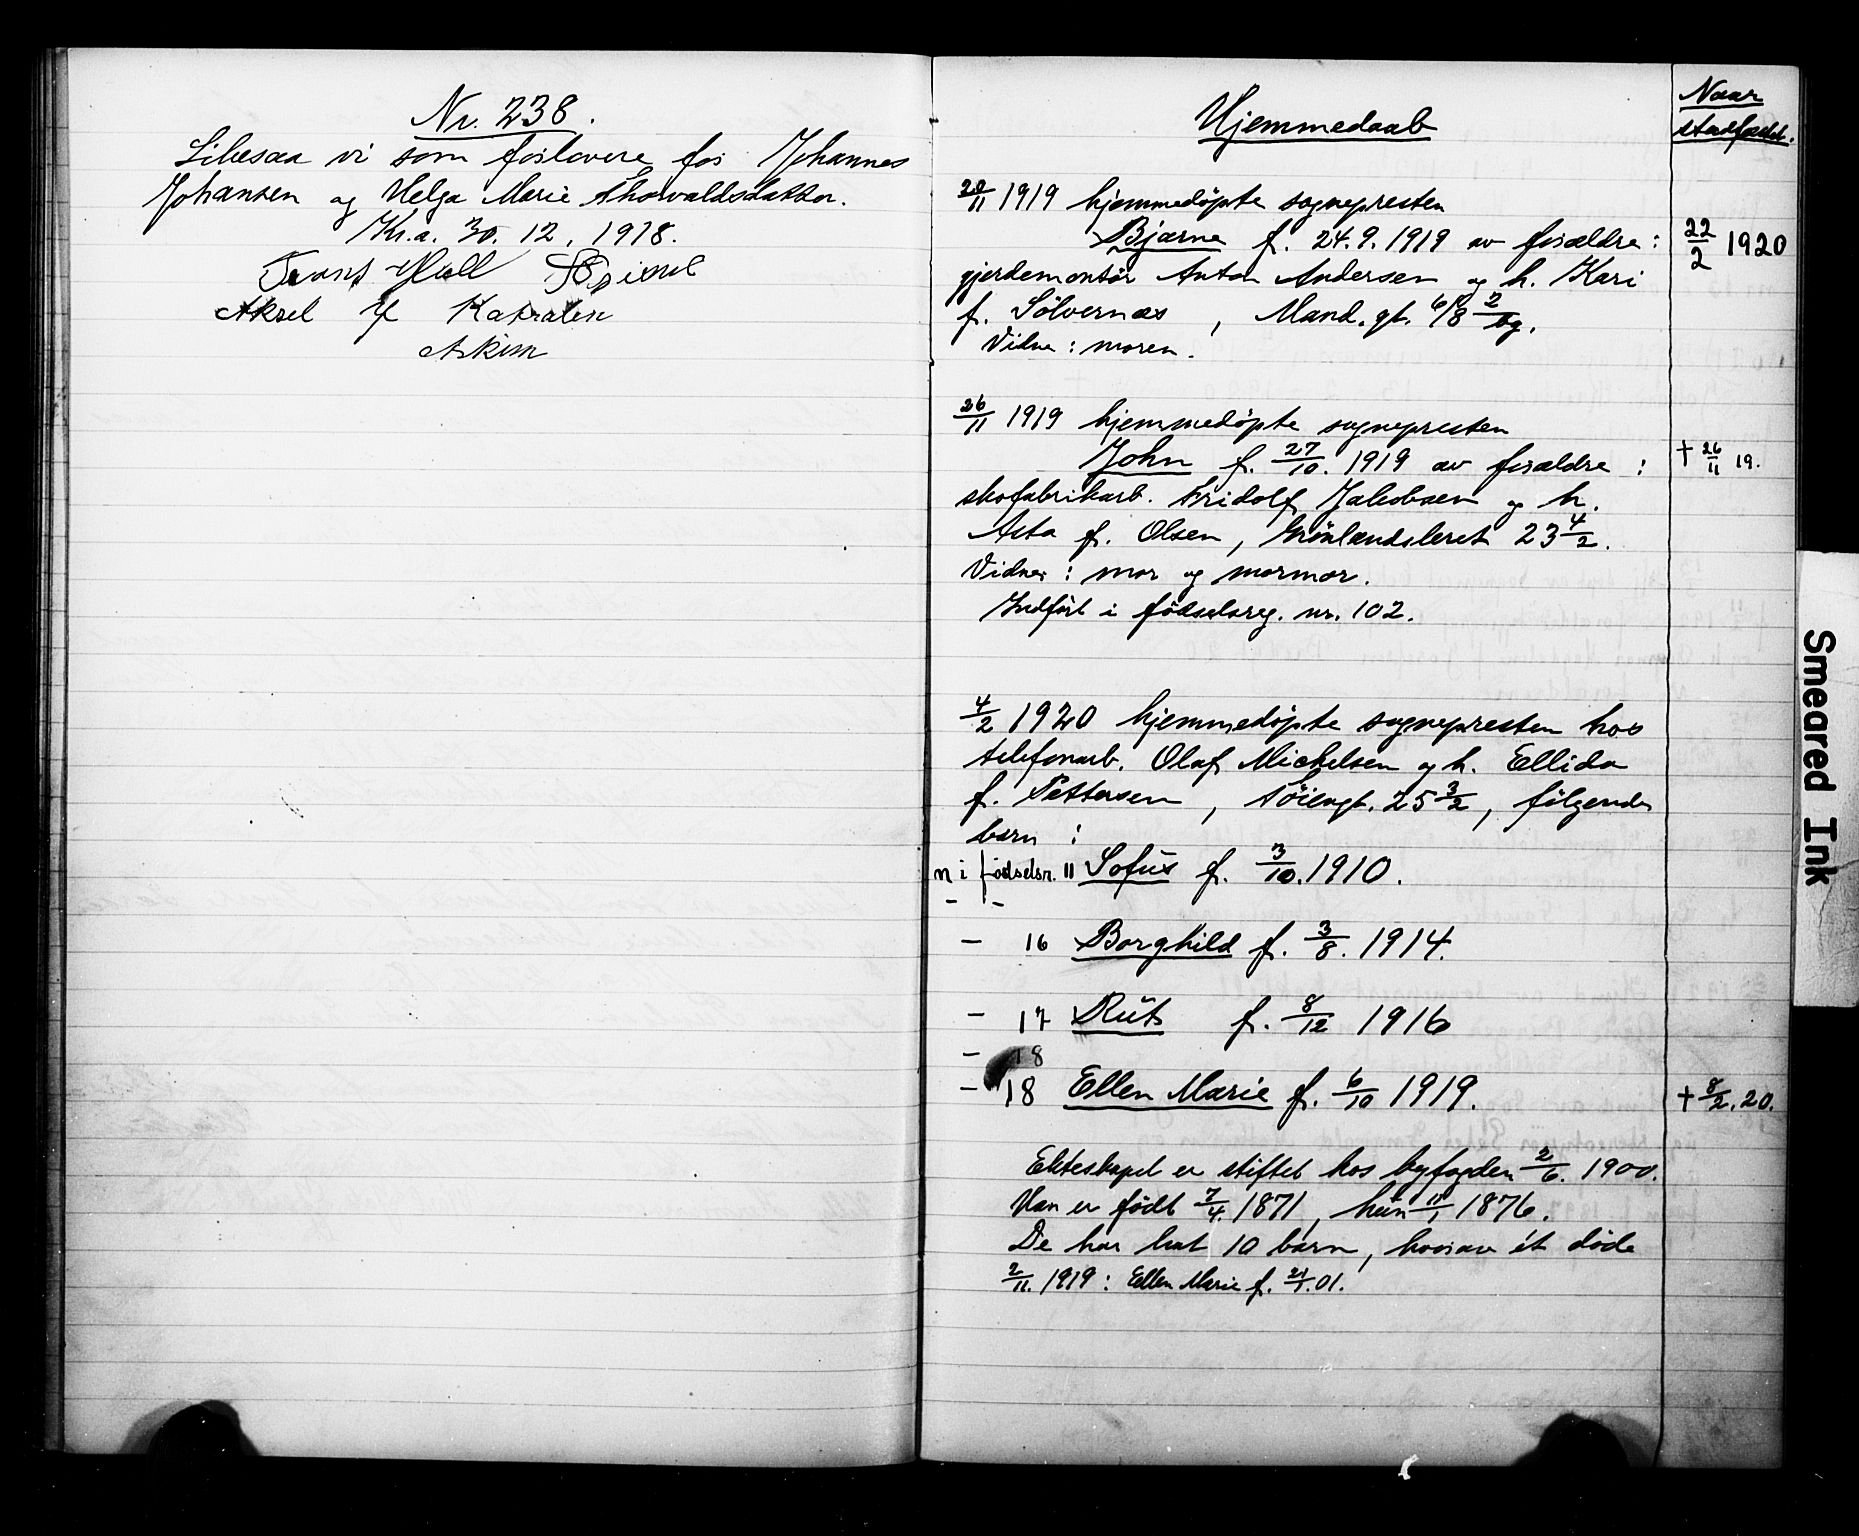 Nr. 238.
Likesaa vi som forlovere for Johannes
Johansen og Helga Marie Thorvaldsdatter.
Kr.a. 30. 12. 1918.
Aksel
Askim
Hjemmedaab
Naar
stadfæstet.
20/11 1919 hjemmedøpte sognepresten
Bjarne f. 24.9.1919 av forældre:
gjerdemontør Anton Andersen og h. Kari
f. Sølvernæs, Mand.gt. 6/8 2/bg.
Vidne: moren.
22/2 1920
26/11 1919 hjemmedøpte sognepresten
John f. 27/10. 1919 av forældre:
skofabrikarb. Fridolf Jakobsen og h.
Asta f. Olsen, Grønlandsleret 23 4/2.
Vidner: mor og mormor.
Indført i fødselsreg. nr. 102.
† 26/11 19.
4/2 1920 hjemmedøpte sognepresten hos
telefonarb. Olaf Michelsen og h. Ellida
f. Pettersen, Töiengt. 25 3/2, følgende
barn:
n i fødselsr. 11 Sofus f. 3/10. 1910.
- -
- 16 Borghild f. 3/8. 1914.
- 17 Rut f. 8/12 1916
- 18
- 18 Ellen Marie f. 6/10 1919.
† 8/2. 20.
Ekteskapet er stiftet hos byfogden 2/6. 1900.
Han er født 7/4. 1871, hun 11/1 1876.
De har hat 10 barn, hvorav ét døde
2/11. 1919: Ellen Marie f. 01.
Smeared Ink